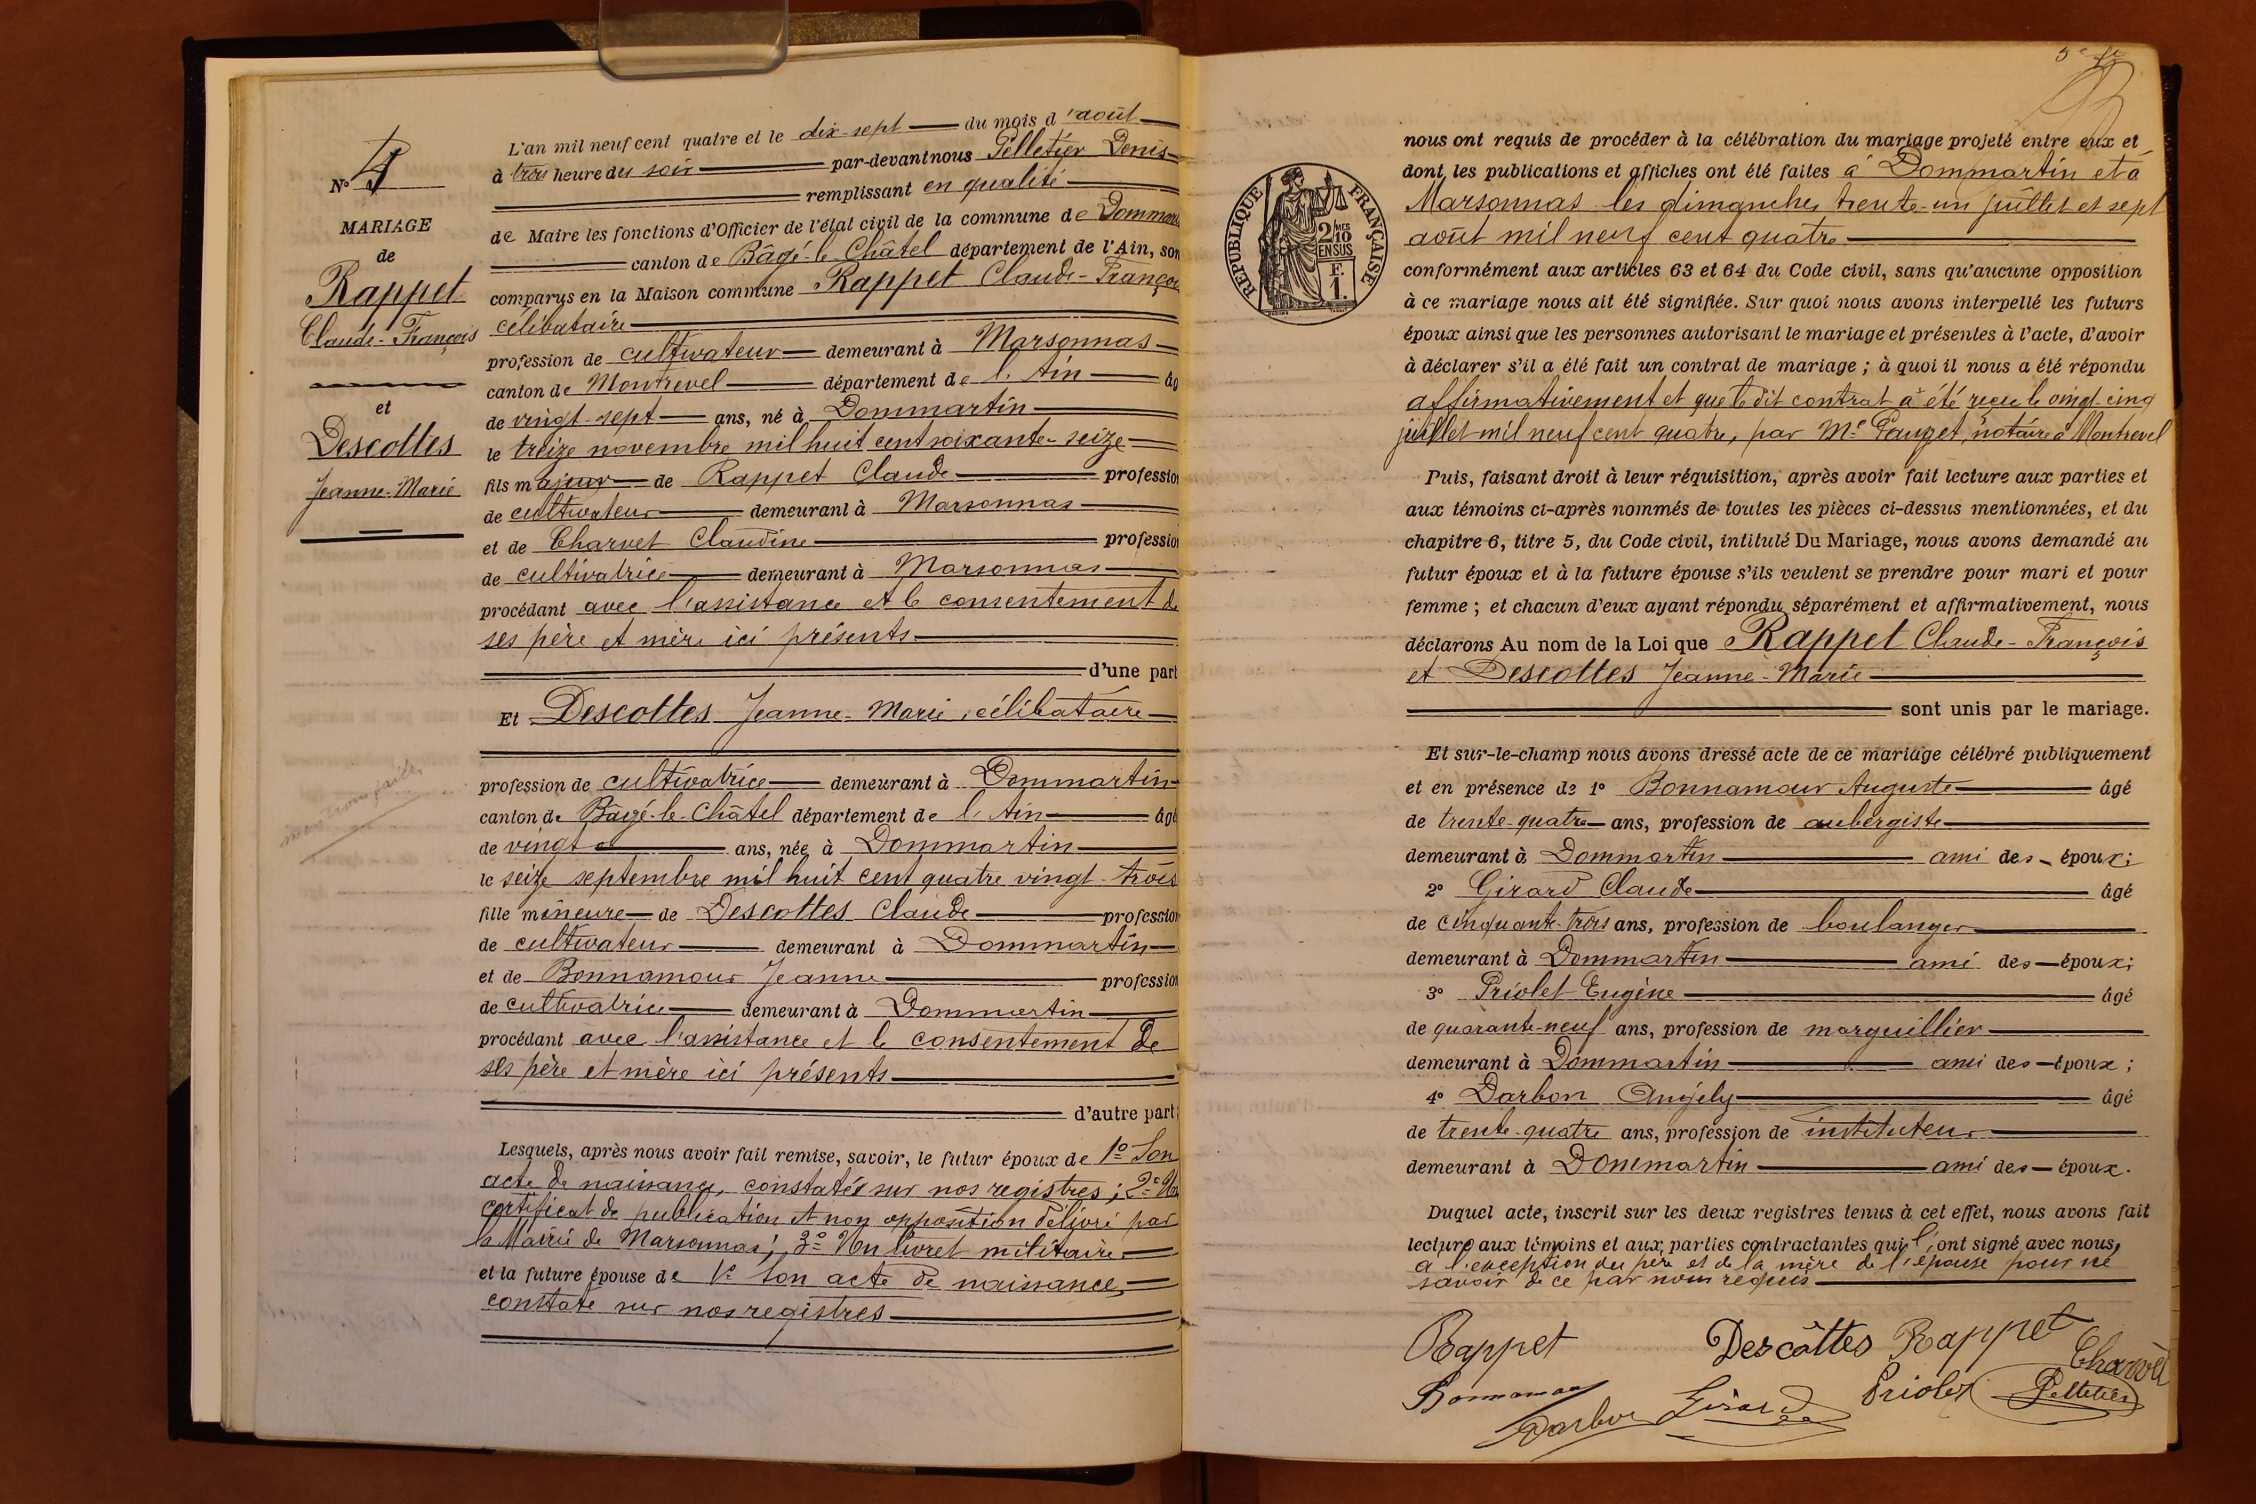 N° 4
MARIAGE
de
Rappet
Claude-François
et
Descottes
Jeanne-Marie
L'an mil neuf cent quatre et le dix-sept du mois d'août
à trois heure du soir par-devant nous Pelletier Denis
remplissant en qualité
de Maire les fonctions d'Officier de l'état civil de la commune de Dommartin
canton de Bâgé-le-Châtel département de l'Ain, son
comparus en la Maison commune Rappet Claude-François
célibataire
profession de cultivateur demeurant à Marsonnas
canton de Montrevel département de l'Ain âg
de vingt-sept ans, né à Dommartin
le treize novembre mil huit cent soixante-seize
fils majeur de Rappet Claude profession
de cultivateur demeurant à Marsonnas
et de Charvet Claudine profession
de cultivatrice demeurant à Marsonnas
procédant avec l'assistance et le consentement de
ses père et mère ici présents
d'une part
Et Descottes Jeanne-Marie, célibataire
profession de cultivatrice demeurant à Dommartin
canton de Bâgé-le-Châtel département de l'Ain âgé
de vingt ans, née à Dommartin
le seize septembre mil huit cent quatre vingt-trois
fille mineure de Descottes Claude profession
de cultivateur demeurant à Dommartin
et de Bonnamour Jeanne profession
de cultivatrice demeurant à Dommartin
procédant avec l'assistance et le consentement de
ses père et mère ici présents
d'autre part;
Lesquels, après nous avoir fait remise, savoir, le futur époux de 1° Son
acte de naissance, constatés sur nos registres; 2° Un
certificat de publication et non opposition délivré par
la Mairie de Marsonnas; 3° Un livret militaire
et la future épouse de 1° Son acte de naissance,
constaté sur nos registres
RÉPUBLIQUE FRANÇAISE
2 MES
10
EN SUS
F.
1.
nous ont requis de procéder à la célébration du mariage projeté entre eux et
dont les publications et affiches ont été faites à Dommartin et à
Marsonnas les dimanches trente-un juillet et sept
août mil neuf cent quatre
conformément aux articles 63 et 64 du Code civil, sans qu'aucune opposition
à ce mariage nous ait été signifiée. Sur quoi nous avons interpellé les futurs
époux ainsi que les personnes autorisant le mariage et présentes à l'acte, d'avoir
à déclarer s'il a été fait un contrat de mariage ; à quoi il nous a été répondu
affirmativement et que le dit contrat a été reçu le vingt cinq
juillet mil neuf cent quatre, par Me Pauget, notaire à Montrevel
Puis, faisant droit à leur réquisition, après avoir fait lecture aux parties et
aux témoins ci-après nommés de toutes les pièces ci-dessus mentionnées, et du
chapitre 6, titre 5, du Code civil, intitulé Du Mariage, nous avons demandé au
futur époux et à la future épouse s'ils veulent se prendre pour mari et pour
femme ; et chacun d'eux ayant répondu séparément et affirmativement, nous
déclarons Au nom de la Loi que Rappet Claude-François
et Descottes Jeanne-Marie
sont unis par le mariage.
Et sur-le-champ nous avons dressé acte de ce mariage célébré publiquement
et en présence de 1° Bonnamour Auguste âgé
de trente-quatre ans, profession de aubergiste
demeurant à Dommartin ami des époux;
2° Girard Claude âgé
de cinquante-trois ans, profession de boulanger
demeurant à Dommartin ami des époux;
3° Priolet Eugène âgé
de quarante-neuf ans, profession de marguillier
demeurant à Dommartin ami des époux;
4° Darbon Angély âgé
de trente-quatre ans, profession de instituteur
demeurant à Dommartin ami des époux.
Duquel acte, inscrit sur les deux registres tenus à cet effet, nous avons fait
lecture aux témoins et aux parties contractantes qui l'ont signé avec nous,
à l'exception du père et de la mère de l'épouse pour ne
savoir de ce par nous requis
Rappet Descôttes Rappet Charvet
Bonnamour Darbon Girard Priolet Pelletier